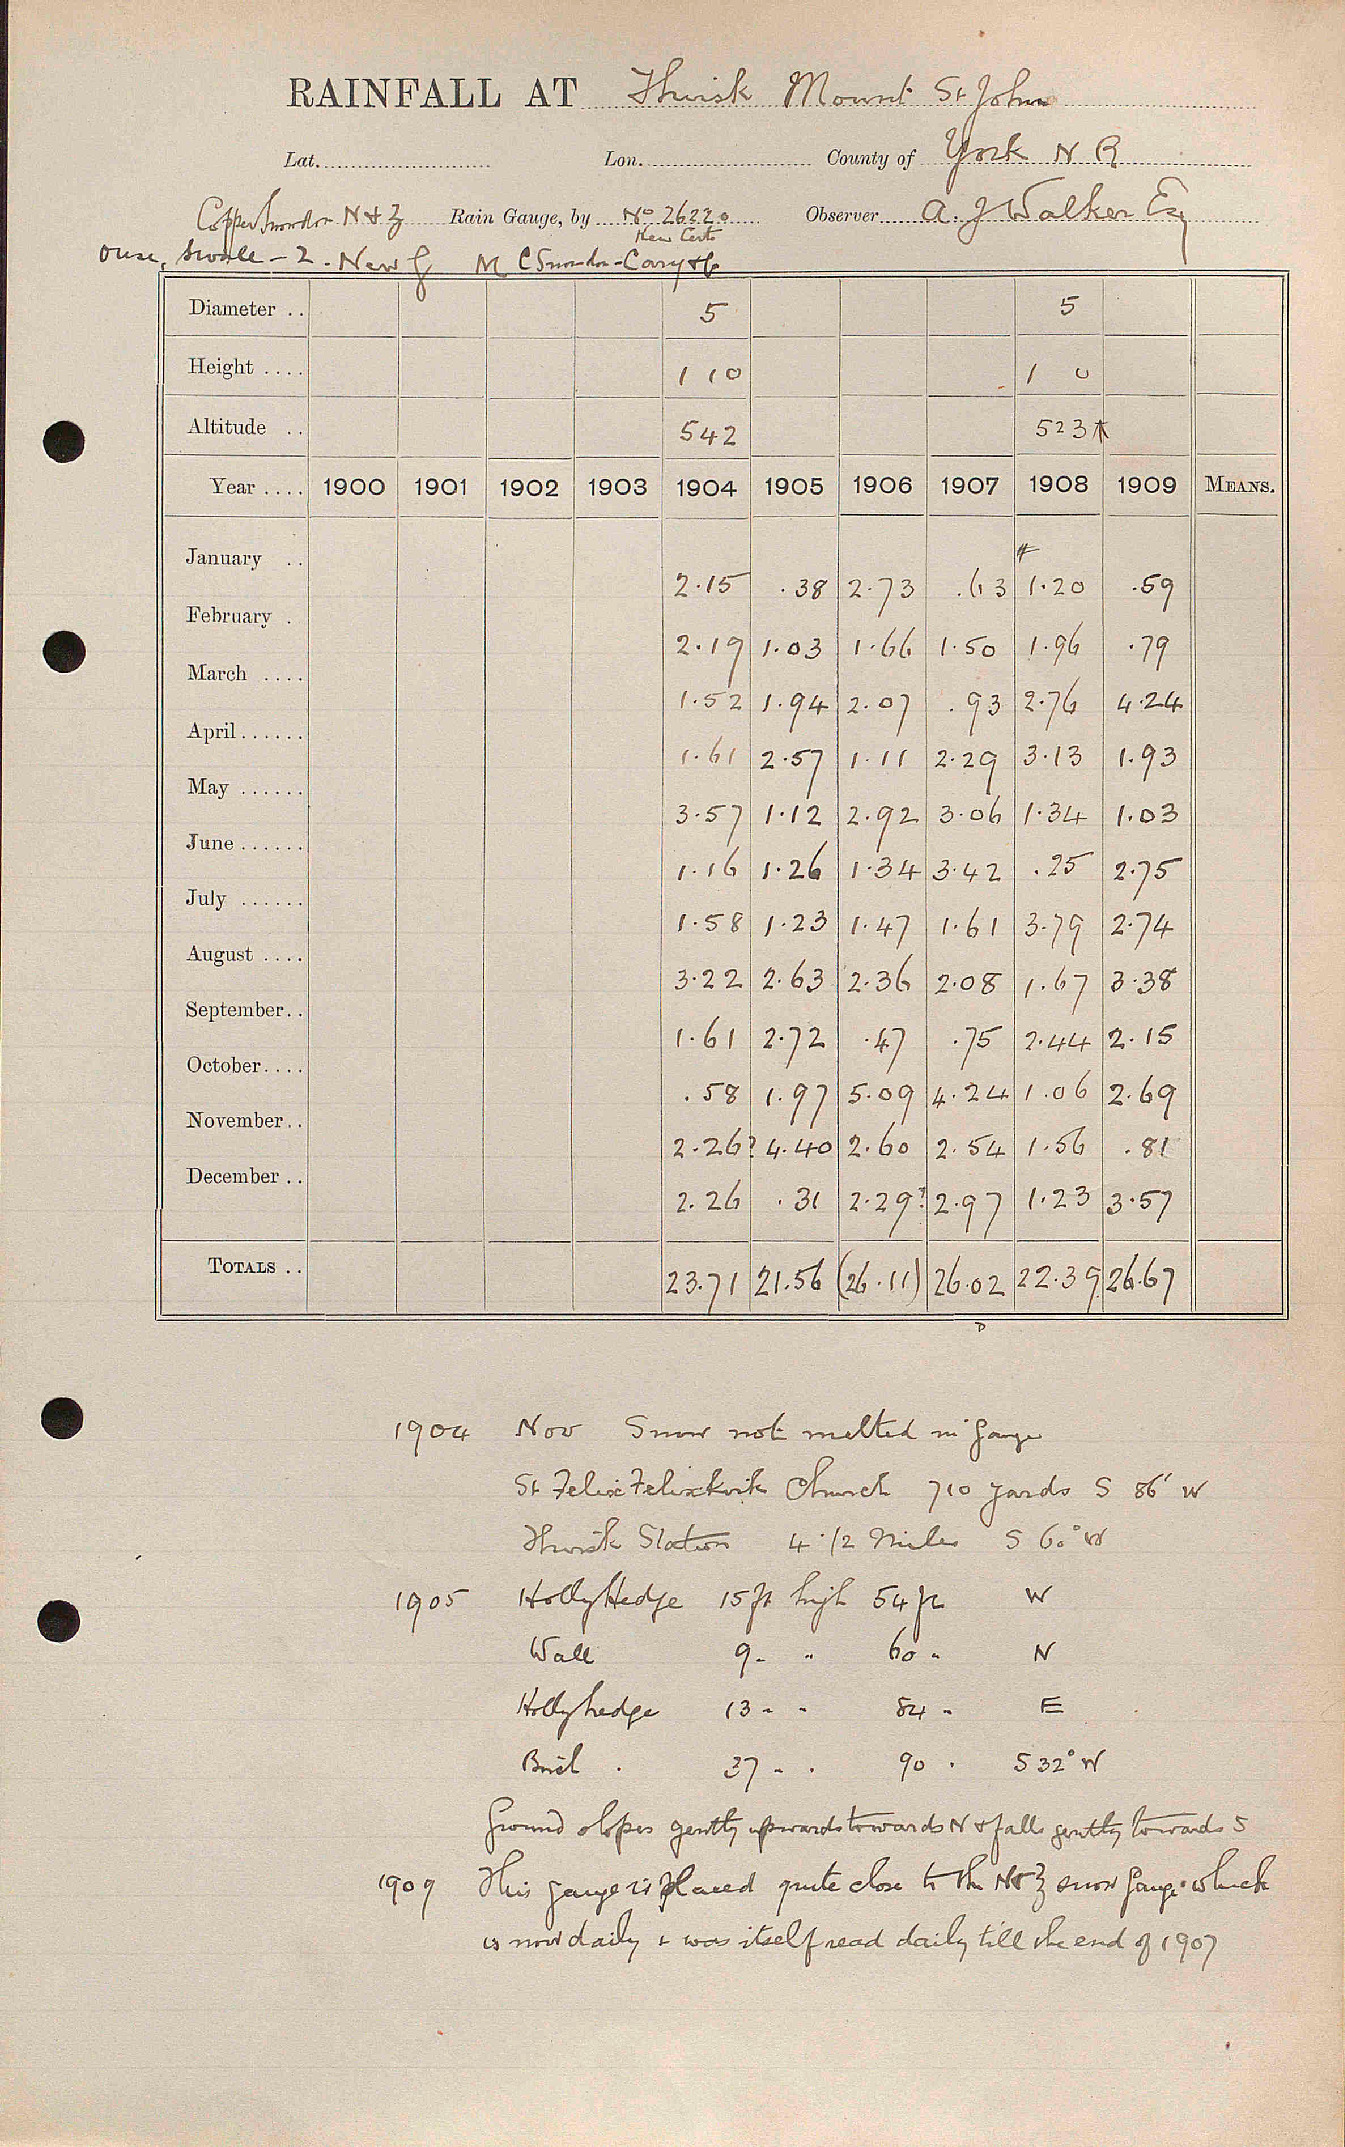 RAINFALL AT Thirsk Mount St John
Lat. Lon. County of York N R
Copper Snowdon N & Z Rain Gauge, by No 26220 Observer A. J Walker Esq
New Cert
Ouse, Swale - 2. New G M C Snowdon - Cary & Co
Diameter .. 5 5
Height .... 1 10 1 0
Altitude .. 542 523
Year .... 1900 1901 1902 1903 1904 1905 1906 1907 1908 1909 MEANS.
January .. 2.15 .38 2.73 .63 1.20 .59
February . 2.19 1.03 1.66 1.50 1.96 .79
March .... 1.52 1.94 2.07 .93 2.76 4.24
April...... 1.61 2.57 1.11 2.29 3.13 1.93
May ...... 3.57 1.12 2.92 3.06 1.34 1.03
June...... 1.16 1.26 1.34 3.42 .25 2.75
July ...... 1.58 1.23 1.47 1.61 3.79 2.74
August .... 3.22 2.63 2.36 2.08 1.67 3.38
September.. 1.61 2.72 .47 .75 2.44 2.15
October.... .58 1.97 5.09 4.24 1.06 2.69
November.. 2.26? 4.40 2.60 2.54 1.56 .81
December .. 2.26 .31 2.29? 2.97 1.23 3.57
TOTALS .. 23.71 21.56 (26.11) 26.02 22.39 26.67
D
1904 Nov Snow not melted in Gauge
St Felix Felixkirk Church 710 yards S 86° W
Thirsk Station 4 1/2 Miles S 60° W
1905 Holly Hedge 15 ft high 54 ft W
Wall 9 " " 60 " N
Holly hedge 13 " " 84 " E
37 " " 90 " S 32° W
Ground slopes gently upwards towards N & falls gently towards S
1909 This gauge is placed quite close to the N & Z snow gauge which
is now daily & was itself read daily till the end of 1907